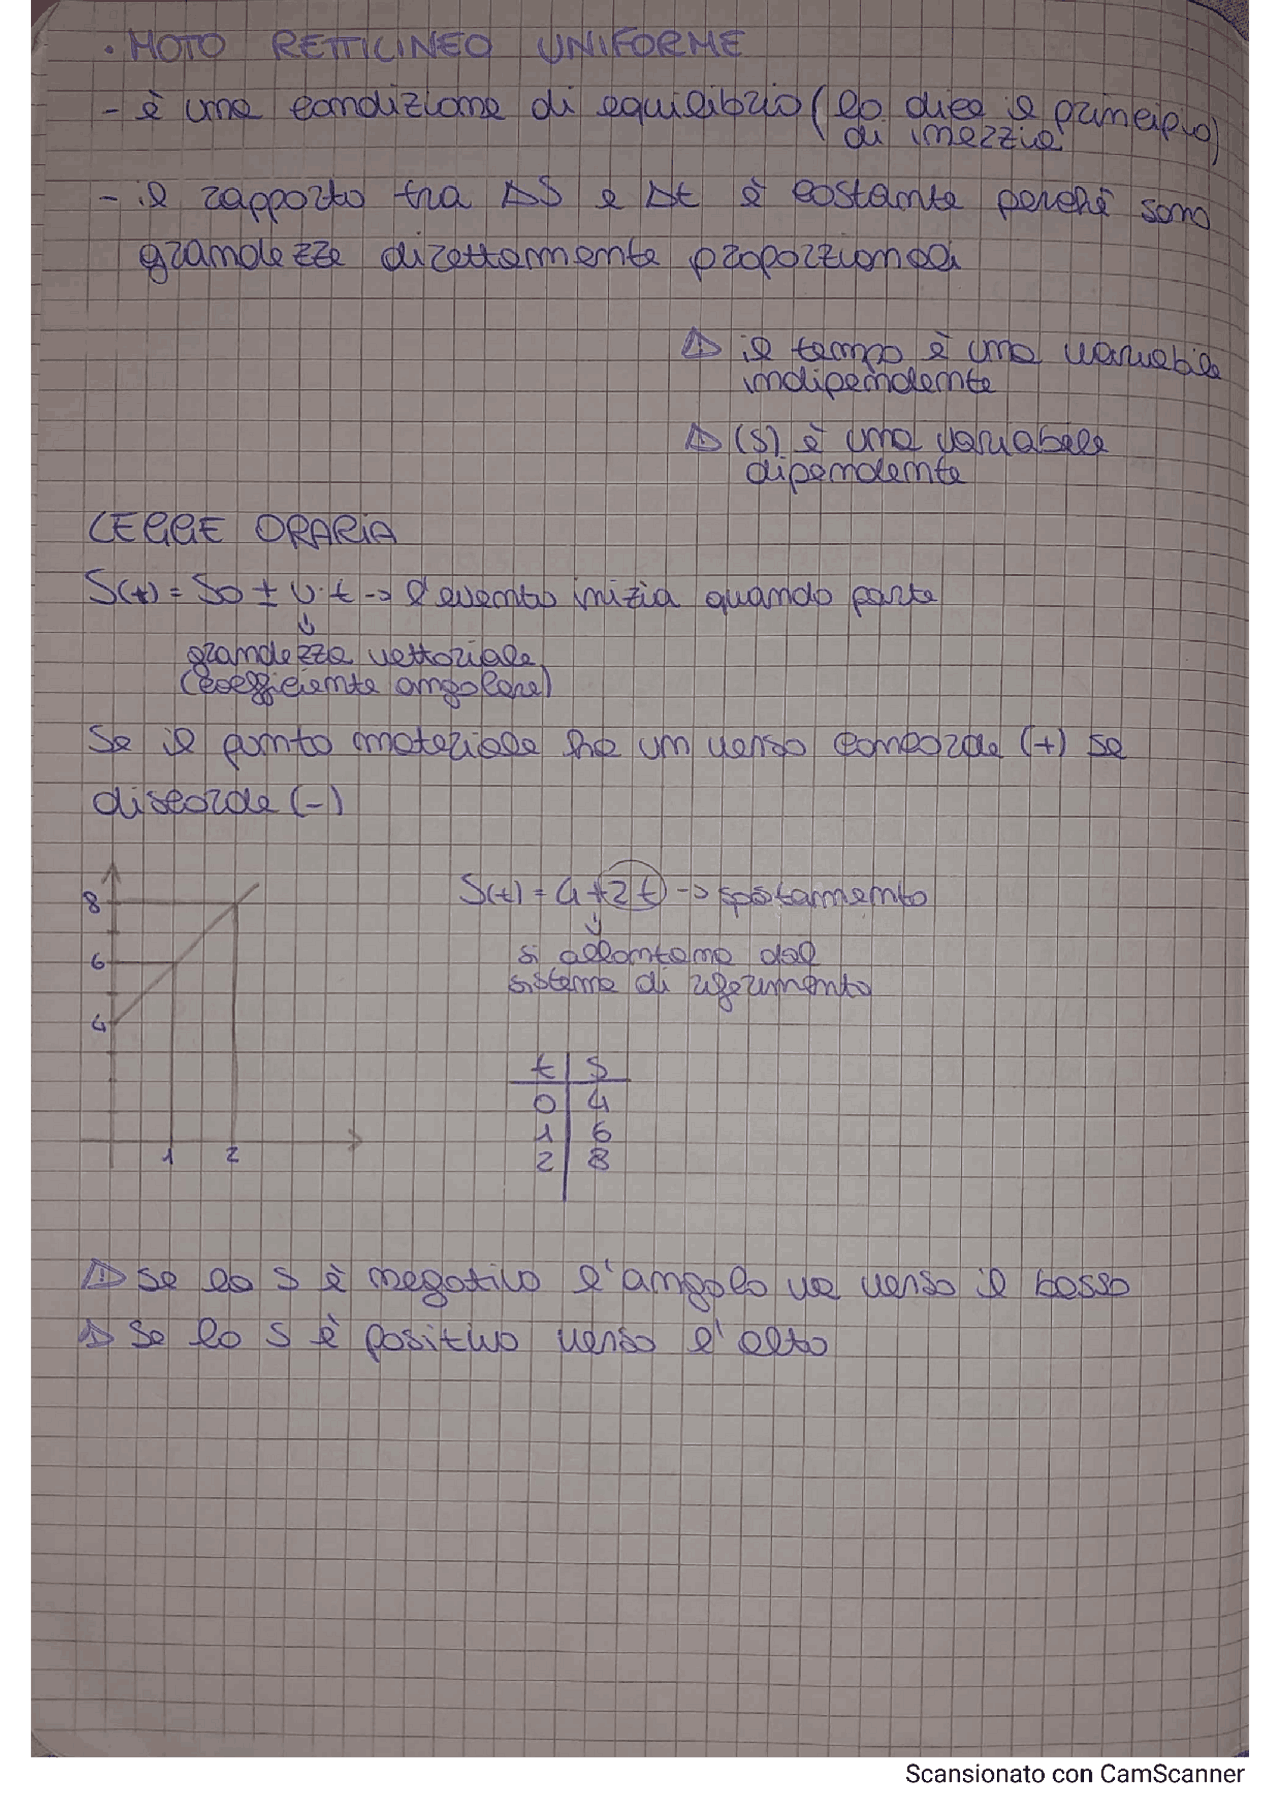 • MOTO RETTILINEO UNIFORME
- è una condizione di equilibrio (lo dice il principio
di inerzia)
- il rapporto tra ΔS e Δt è costante perché sono
grandezze direttamente proporzionali
⚠ il tempo è una variabile
indipendente
⚠ (S) è una variabile
dipendente
LEGGE ORARIA
S(t) = So ± v·t -> l'evento inizia quando parte
↓
grandezza vettoriale
(coefficiente angolare)
Se il punto materiale ha un verso concorde (+) se
discorde (-)
S(t) = 4+2t -> spostamento
↓
si allontana dal
sistema di riferimento
8
6
4
1 2
t | S
0 | 4
1 | 6
2 | 8
⚠ se lo S è negativo l'angolo va verso il basso
⚠ se lo S è positivo verso l'alto
Scansionato con CamScanner